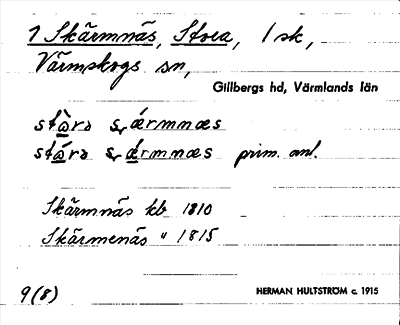 7 Skärmnäs, Stora, 1 sk,
Värmskogs sn,
Gillbergs hd, Värmlands län
stàra særmnæs
stára sǽrmnæs prim. anl.
Skärmnäs kb 1810
Skärmenäs " 1815
9(8)
HERMAN HULTSTRÖM c. 1915